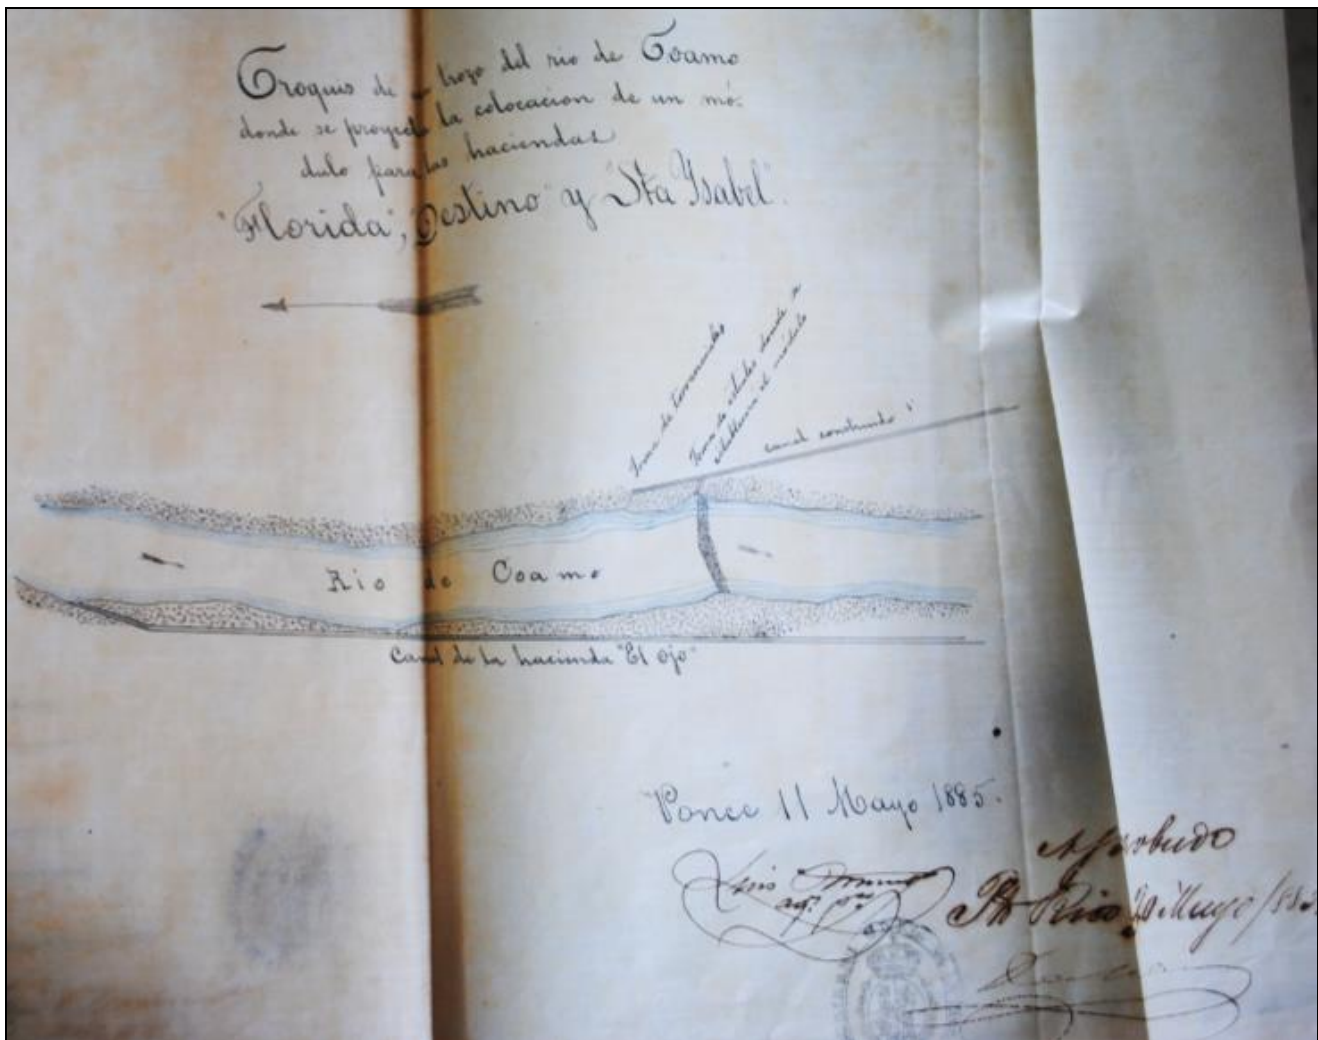 Croquis de un trozo del rio de Coamo
donde se proyecta la colocacion de un mó-
dulo para las haciendas
"Florida", "Destino" y "Sta Ysabel".
Toma de
Toma de donde se
establecerá el módulo
canal construido
Rio de Coamo
Canal de la hacienda "El Ojo"
Ponce 11 Mayo 1885.
Luis
Aprobado
Pto Rico 20 Mayo /885